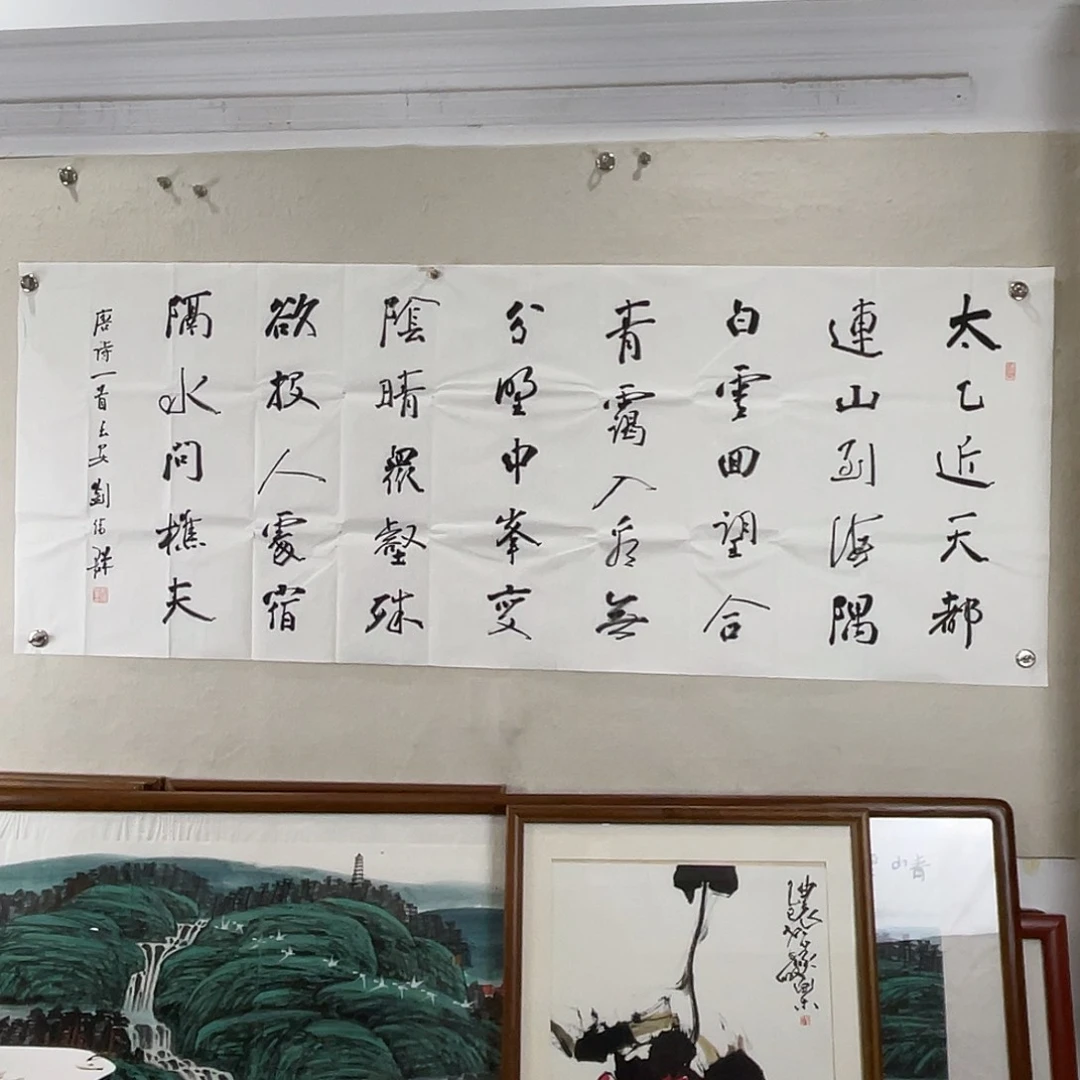 太乙近天都
連山到海隅
白雲回望合
青靄入看無
分野中峯變
陰晴衆壑殊
欲投人處宿
隔水問樵夫
唐诗一首長安劉